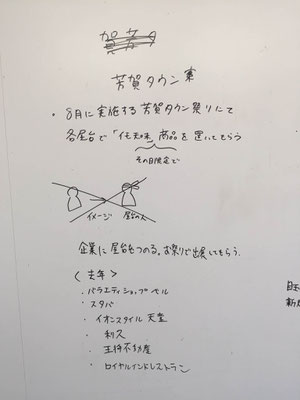 芳賀タウン案
・8月に実施する芳賀タウン祭りにて
各屋台で「低知味」商品を置いてもらう
その日限定で
イメージ
屋台の人
企業に屋台もつのる。お祭りで出展してもらう。
〈去年〉
・バラエティショップベル
・スタバ
・イオンスタイル天童
・利久
・王将不動産
・ロイヤルインドレストラン